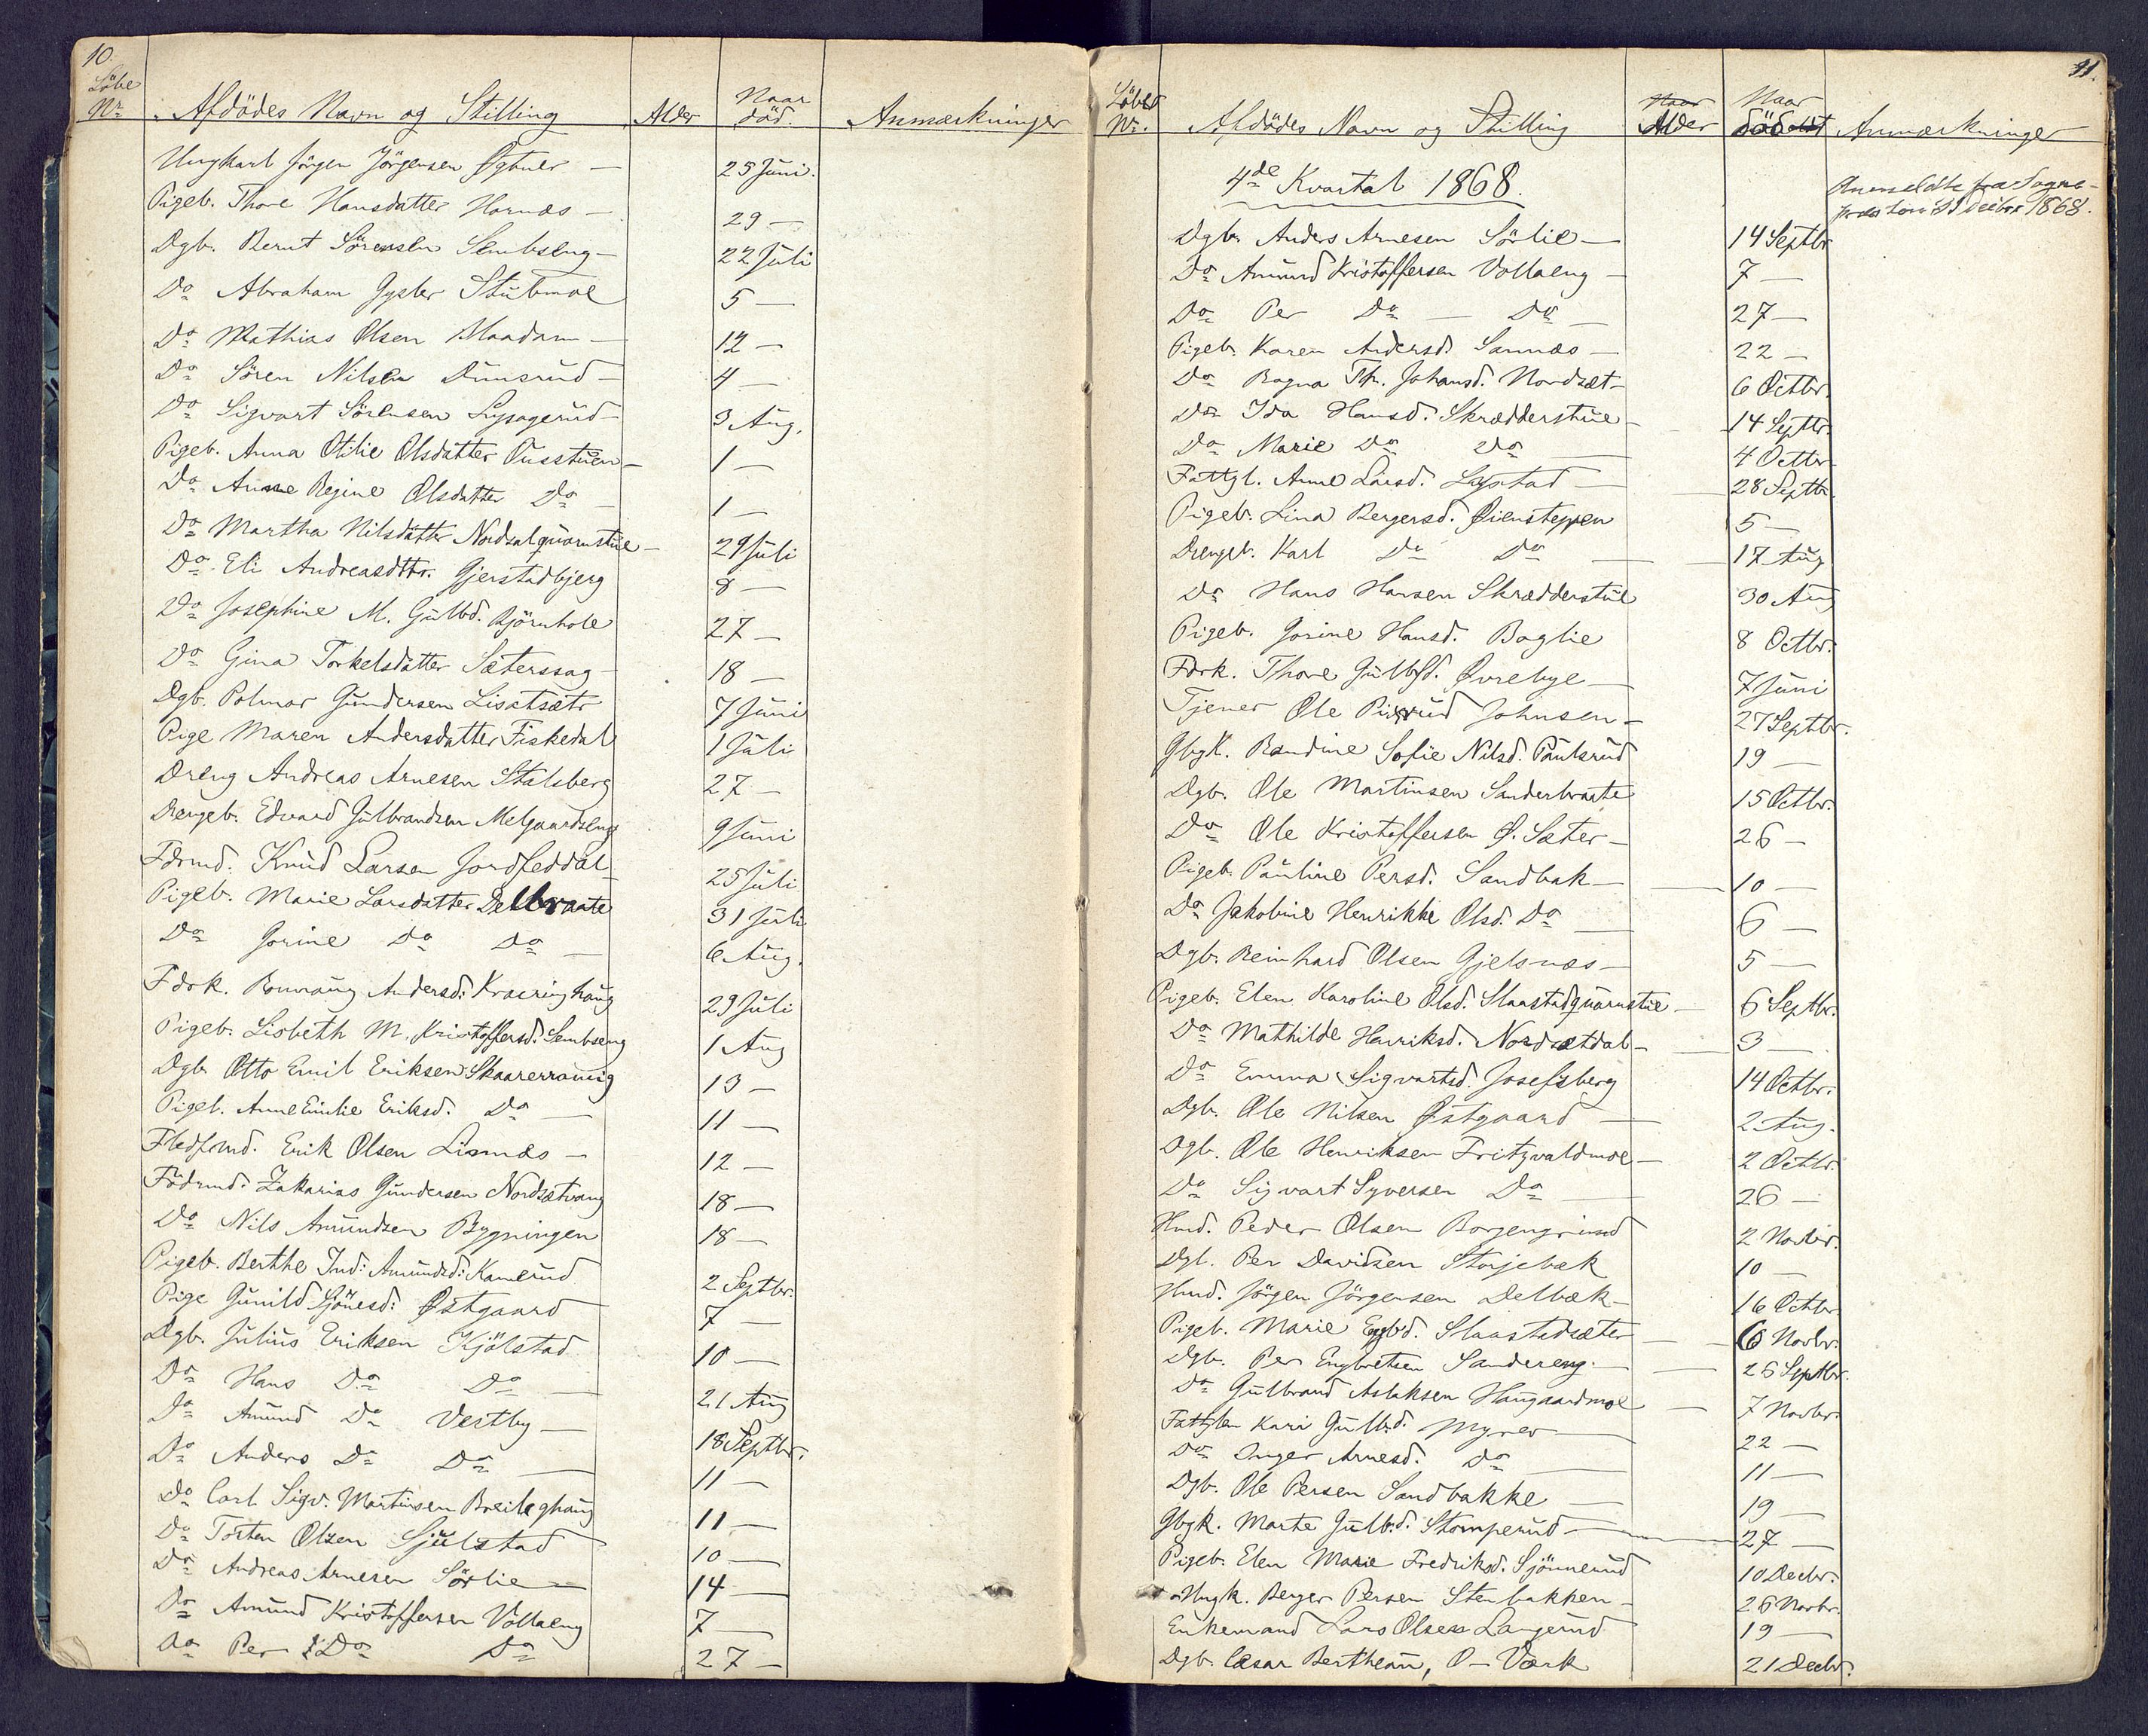 10.
Löbe
Nr. Afdödes Navn og Stilling Alder Naar död. Anmærkninger
Ungkarl Jörgen Jörgensen — 25 Juni.
Pigeb. Thore Hansdatter Hornæs — 29 —
Dgb. Bernt Sörensen Sembseng — 22 Juli
Do Abraham Gysler Stubmoe 5 —
Do Mathias Olsen Maadam — 12 —
Do Sören Nilsen Dunsrud — 4 —
Do Sigvart Sörensen — 3 Aug.
Pigeb. Anna Otilie Olsdatter Ousstuen — 1 —
Do Anne Regine Olsdatter Do — 1 —
Do Martha Nilsdatter Nordsalquarnstue — 29 Juli
Do Eli Andreasdttr. Gjerstadbjerg 8 —
Do Josephine M. Gulbd. Björnhole 27 —
Do Gina Torkelsdatter Sæterssag — 18 —
Dgb. Polmar Gundersen 7 Juni
Pige Maren Andersdatter Fiskedal 1 Juli
Dreng Andreas Arnesen Stalsberg 27 —
Drengeb. Edvard Gulbrandsen Melgaardseng 9 Juni
Fdrmd. Knud Larsen Jordfeddal — 25 Juli
Pigeb. Marie Larsdatter Delbraate 31 Juli
Do Jorine Do Do — 6 Aug.
Fdrk. Andersd: Kraeringhaug 29 Juli
Pigeb. Lisbeth M. Kristoffersd. Sembseng 1 Aug
Dgb. Otto Emil Eriksen Skaarerrauing 13 —
Pigeb. Anne Emilie Eriksd. Do — 11 —
Erik Olsen Lisnæs — 12 —
Födrmd. Zakarias Gundersen Nordsætvang 18 —
Do Nils Amundsen Bygningen 18 —
Pigeb. Berthe Ind: Amundsd: Kamerud 2 Septbr.
Pige Gunild Östgaard 7 —
Dgb. Julius Eriksen Kjölstad 10 —
Do Hans Do Do — 21 Aug
Do Amund Do Vestby — 18 Septbr.
Do Anders Do Do — 11 —
Do Carl Sigv. Martinsen Breileghaug 11 —
Do Torsten Olsen Sjulstad 10 —
Do Andreas Arnesen Sörlie — 14 —
Do Amund Kristoffersen Vollaeng 7 —
Do Per Do Do 27 —
11.
Löbe
Nr. Afdödes Navn og Stilling Alder Naar död Anmærkninger
4de Kvartal 1868.
Anmeldte fra Sogne-
presten 31 Decbr 1868.
Dgb. Anders Arnesen Sörlie — 14 Septbr
Do Amund Kristoffersen Vollaeng — 7 —
Do Per Do — Do — 27 —
Pigeb. Karen Andersd. Sannæs — 22 —
Do Ragna Th. Johansd. Nordsæt — 6 Octbr.
Do Ida Hansd. Skrædderstue — 14 Septbr.
Do Marie Do Do — 4 Octbr
Fattgl. Anne Larsd. Lystad — 28 Septbr.
Pigeb. Lina Bergersd. Öiensteppen 5 —
Drengb. Karl Do Do — 17 Aug
Do Hans Hansen Skrædderstue 30 Aug
Pigeb. Jorine Hansd. Baglie 8 Octbr.
Fdrk. Thore Gulbrd. Övrebye — 7 Juni
Tjener Ole Johnsen — 27 Septbr.
Gbgk. Randine Sofie Nilsd. Paulsrud 19 —
Dgb. Ole Martinsen Sanderbraate 15 Octbr.
Do Ole Kristoffersen Ö. Sæter — 26 —
Pigeb. Pauline Persd. Sandbak — 10 —
Do Jakobine Henrikke Olsd. Do — 6 —
Dgb. Reinhard Olsen Gjelsnæs — 5 —
Pigeb. Elen Karoline Olsd. Slaastadquarnstue — 6 Septbr.
Do Mathilde Henriksd. Nordsætdal — 3 —
Do Emma Sigvartsd. Josefsberg 14 Octbr.
Dgb. Ole Nilsen Östgaard — 2 Aug.
Dgb. Ole Henriksen Fritzvaldmoe — 2 Octbr.
Do Sigvart Syversen Do — 26 —
Hmd. Peder Olsen Borgengrind 2 Novbr.
Dgb. Per Davidsen Storjebæk 10 —
Hmd. Jörgen Jörgensen Delbæk — 16 Octbr
Pigeb. Marie Engbd. Slaastadsæter — 6 Novbr.
Dgb. Per Engbretsen Sandereng — 26 Septbr.
Do Gulbrand Aslaksen Haugaardmoe — 7 Novbr.
Fattglem Kari Gulbd. Myrer — 22 —
Do Inger Arnesd. Do — 11 —
Dgb. Ole Persen Sandbakke — 19 —
Gbgk. Marte Gulbd. Stomperud — 27 —
Pigeb. Elen Marie Fredriksd. Sjönnerud 10 Decbr.
Ungk. Berger Persen Stenbakken — 26 Novbr.
Enkemand Lars Olsen Langerud 19 —
Dgb. Cæsar Bertheau, O- Værk 21 Decbr.